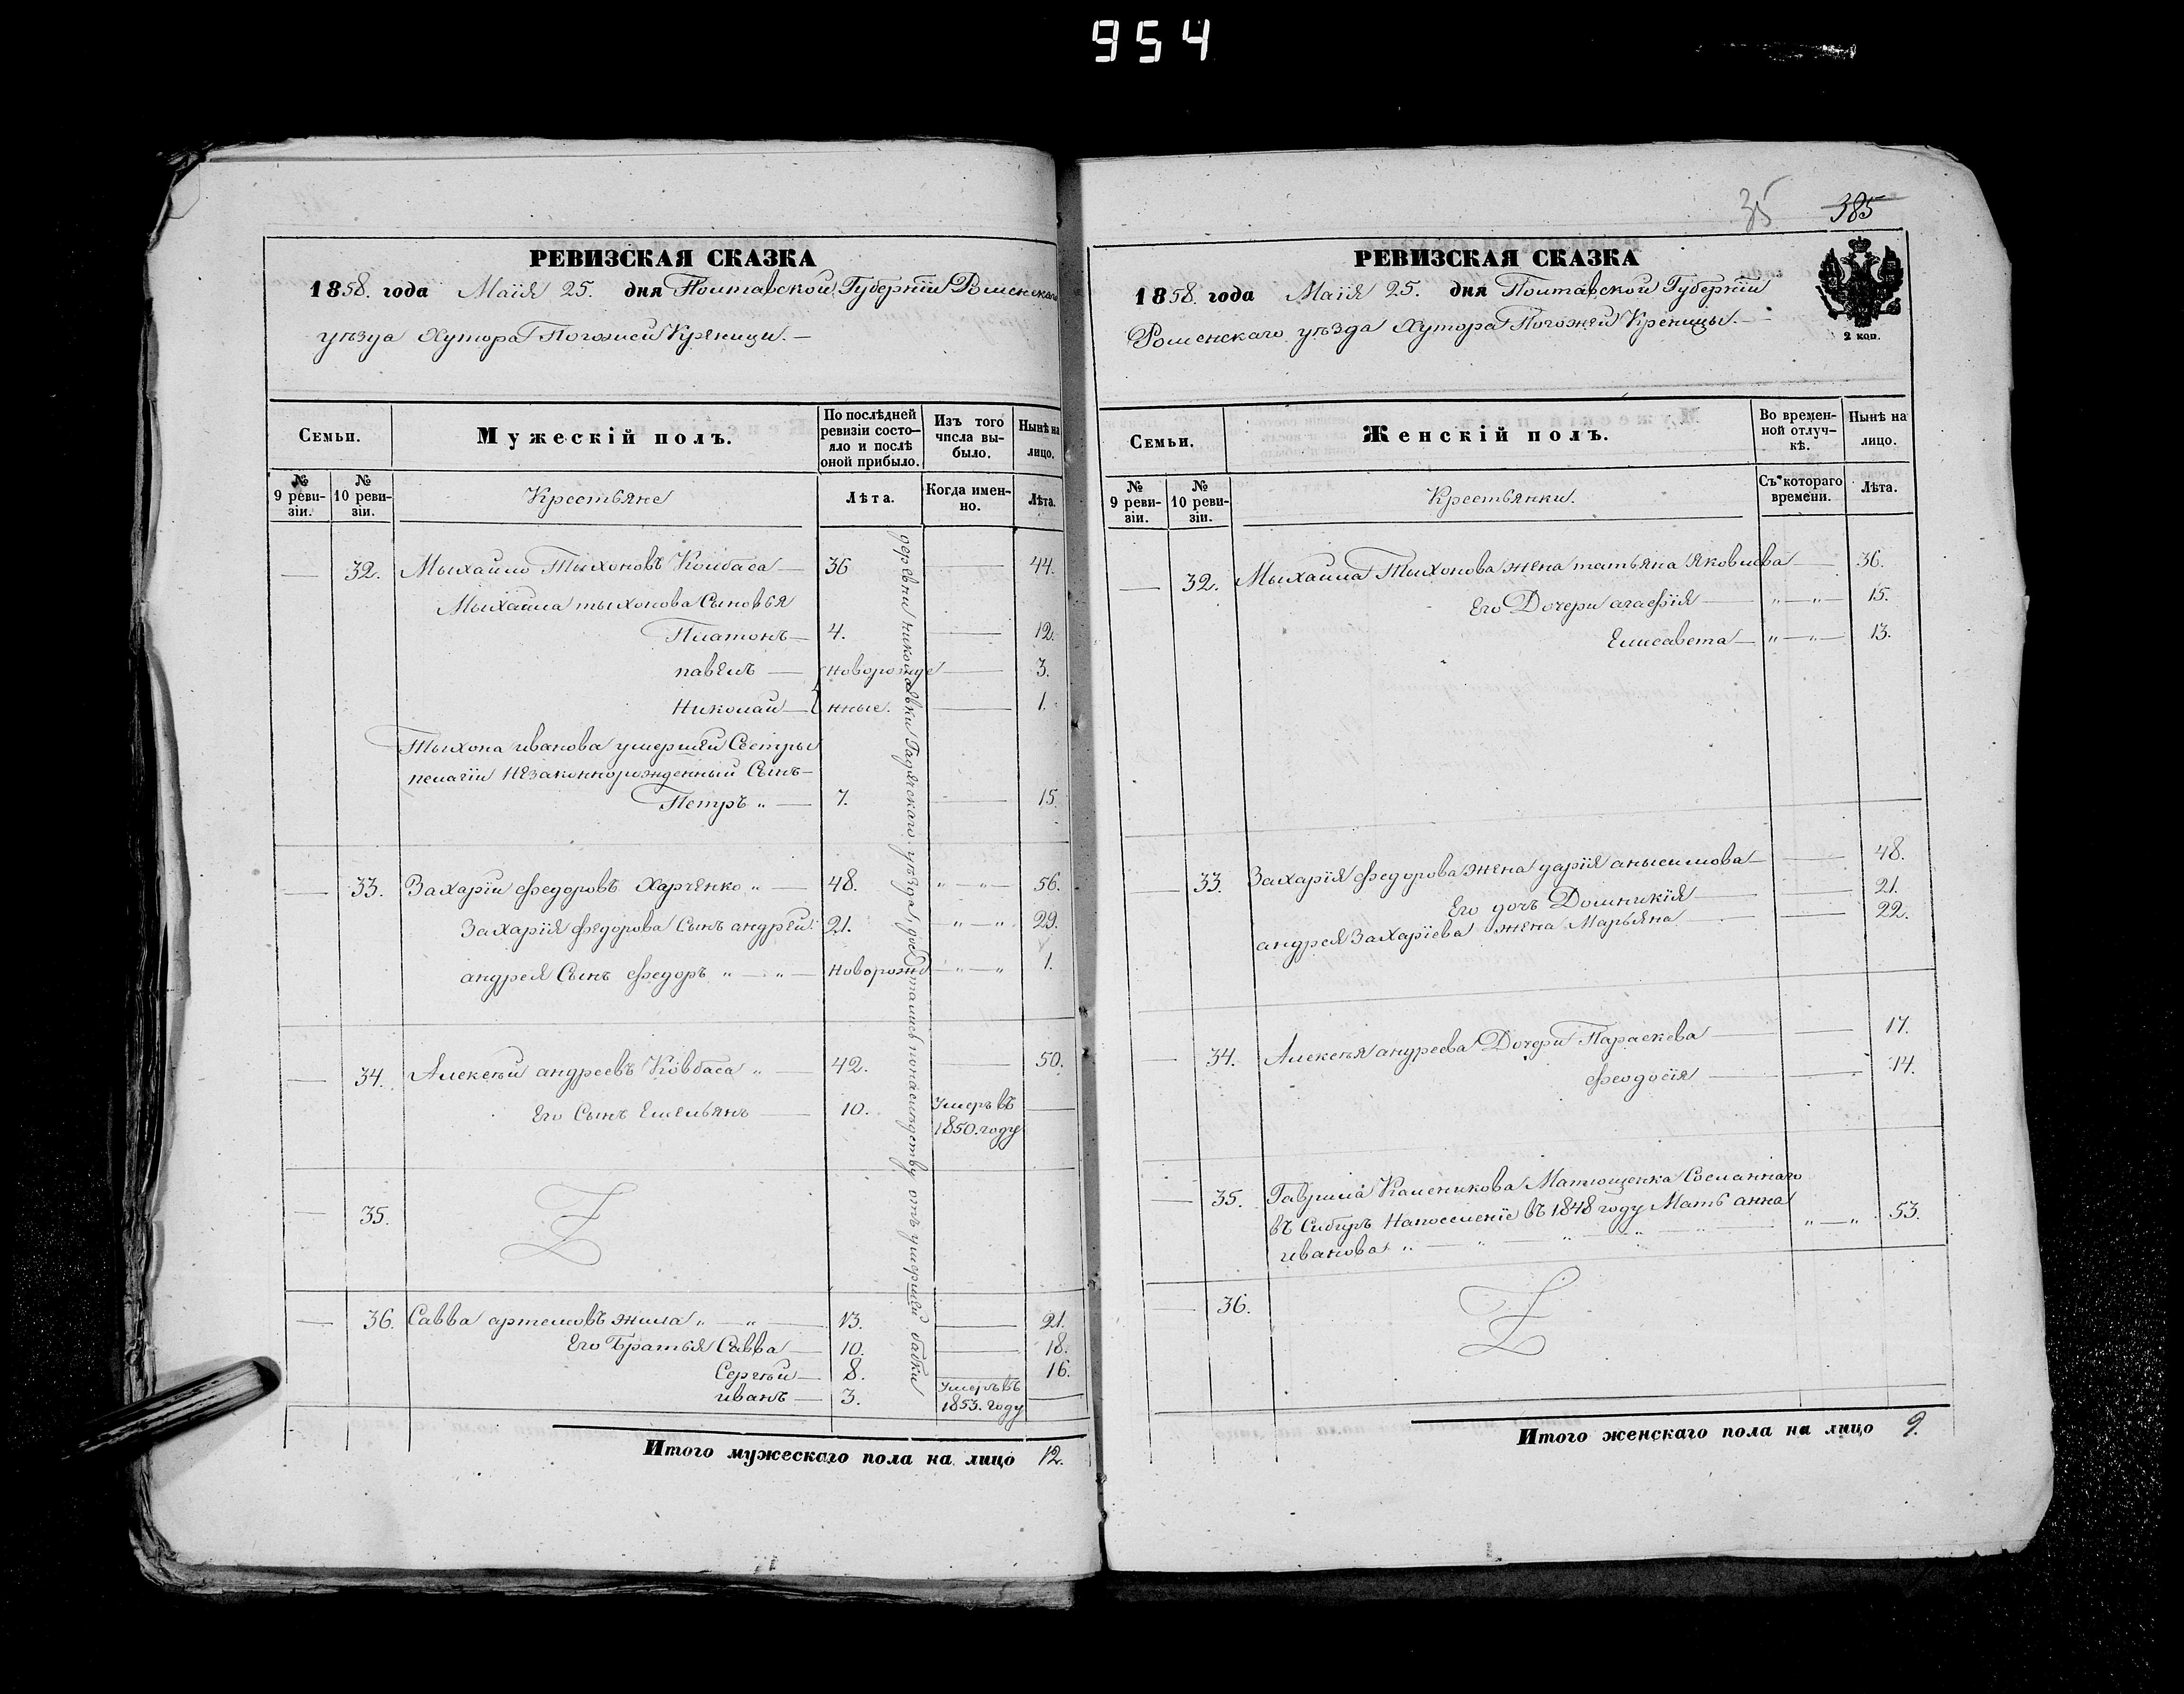 954
РЕВИЗСКАЯ СКАЗКА
1858. года Маія 25. дня Полтавской Губерніи Роменскаго
уѣзда Хутора Погожей Криници. —
Семьи.
Мужескій полъ.
По послѣдней ревизіи состояло и послѣ оной прибыло.
Изъ того числа выбыло.
Нынѣ на лицо.
№ 9 ревизіи.
№ 10 ревизіи.
Крестьяне
Лѣта.
Когда именно.
Лѣта.
— 32. Мыхайло Тыхоновъ Колбаса — 36 — 44.
Мыхайла тыхонова Сыновья
Платонъ — 4. — 12.
павелъ — новорожде — 3.
Николай — нные. — 1.
Тыхона иванова умершей Сестры
пелагіи Незаконнорожденный Сынъ —
Петръ „ — 7. — 15.
— 33. Захарій федоровъ Харченко „ — 48. „ — „ — 56.
Захарія федорова Сынъ андрей. 21. „ — „ 29.
андрея Сынъ федоръ „ — „ — новорожд — „ — „ 1.
— 34. Алексѣй андреевъ Ковбаса „ — 42. — 50.
Его Сынъ Емельянъ — 10. Умеръ въ 1850. году —
— 35.
— 36. Савва артемовъ жила „ — „ — 13. — 21.
Его Братья Савва — 10. — 18.
Сергѣй — 8. 16.
иванъ — 3. Умеръ въ 1853. году —
деревни николаевки Гадячскаго уѣзда, достались понаследству отъ умершей бабки
Итого мужескаго пола на лицо 12.
35 385
РЕВИЗСКАЯ СКАЗКА
1858. года Маія 25. дня Полтавской Губерніи
Роменскаго уѣзда Хутора Погожей Криницы. —
2 коп.
Семьи.
Женскій полъ.
Во временной отлучкѣ.
Нынѣ на лицо.
№ 9 ревизіи.
№ 10 ревизіи.
Крестьянки.
Съ котораго времени.
Лѣта.
— 32. Мыхайла Тыхонова жена татьяна Яковлева — 36.
Его Дочери агафія — „ — „ — 15.
Елисавета — „ — „ — 13.
— 33. Захарія федорова жена дарія анысимова — — 48.
Его дочь Домникія — — 21.
андрея Захаріева жена Марьяна — — 22.
— 34. Алексѣя андреева Дочери Параскева — — 17.
феодосія — — 14.
— 35. Гаврила Матющенка Сосланнаго
въ Сибирь Напоселеніе въ 1848 году Мать анна
иванова „ — „ — „ — „ — „ — „ 53.
— 36.
Итого женскаго пола на лицо 9.